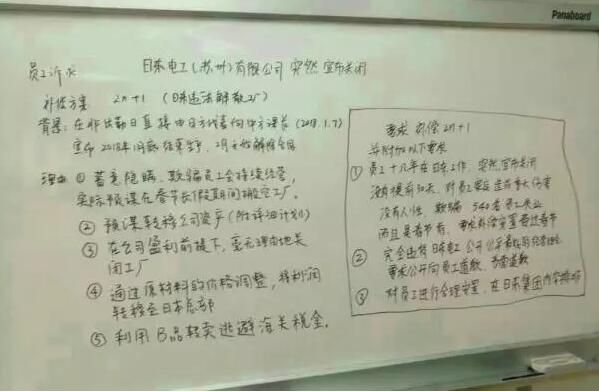 Panaboard
员工诉求
日东电工(苏州)有限公司 突然宣布关闭
补偿方案 2n+1 (日东违法解散工厂)
背景:在非出勤日直接由日方代表向中方课长(2018.1.7)
宣布2018年1月底结束生产,2月开始解除合同
理由 ① 蓄意隐瞒、欺骗员工会持续经营,
实际预谋在春节长假期间搬空工厂。
② 预谋转移公司资产(附详细计划)
③ 在公司盈利前提下,毫无理由地关
闭工厂
④ 通过原材料的价格调整,将利润
转移至日本总部
⑤ 利用B品转卖逃避海关税金。
要求 补偿2n+1
并附加以下要求
① 员工十几年在日东工作,突然宣布关闭
没有提前30天,对员工
没有人性,欺骗 540名员工失业
而且是春节前,要求补偿
② 完全违背日东电工公司公开
要求公开向员工道歉,书面道歉
③ 对员工进行合理安置,在日东集团内